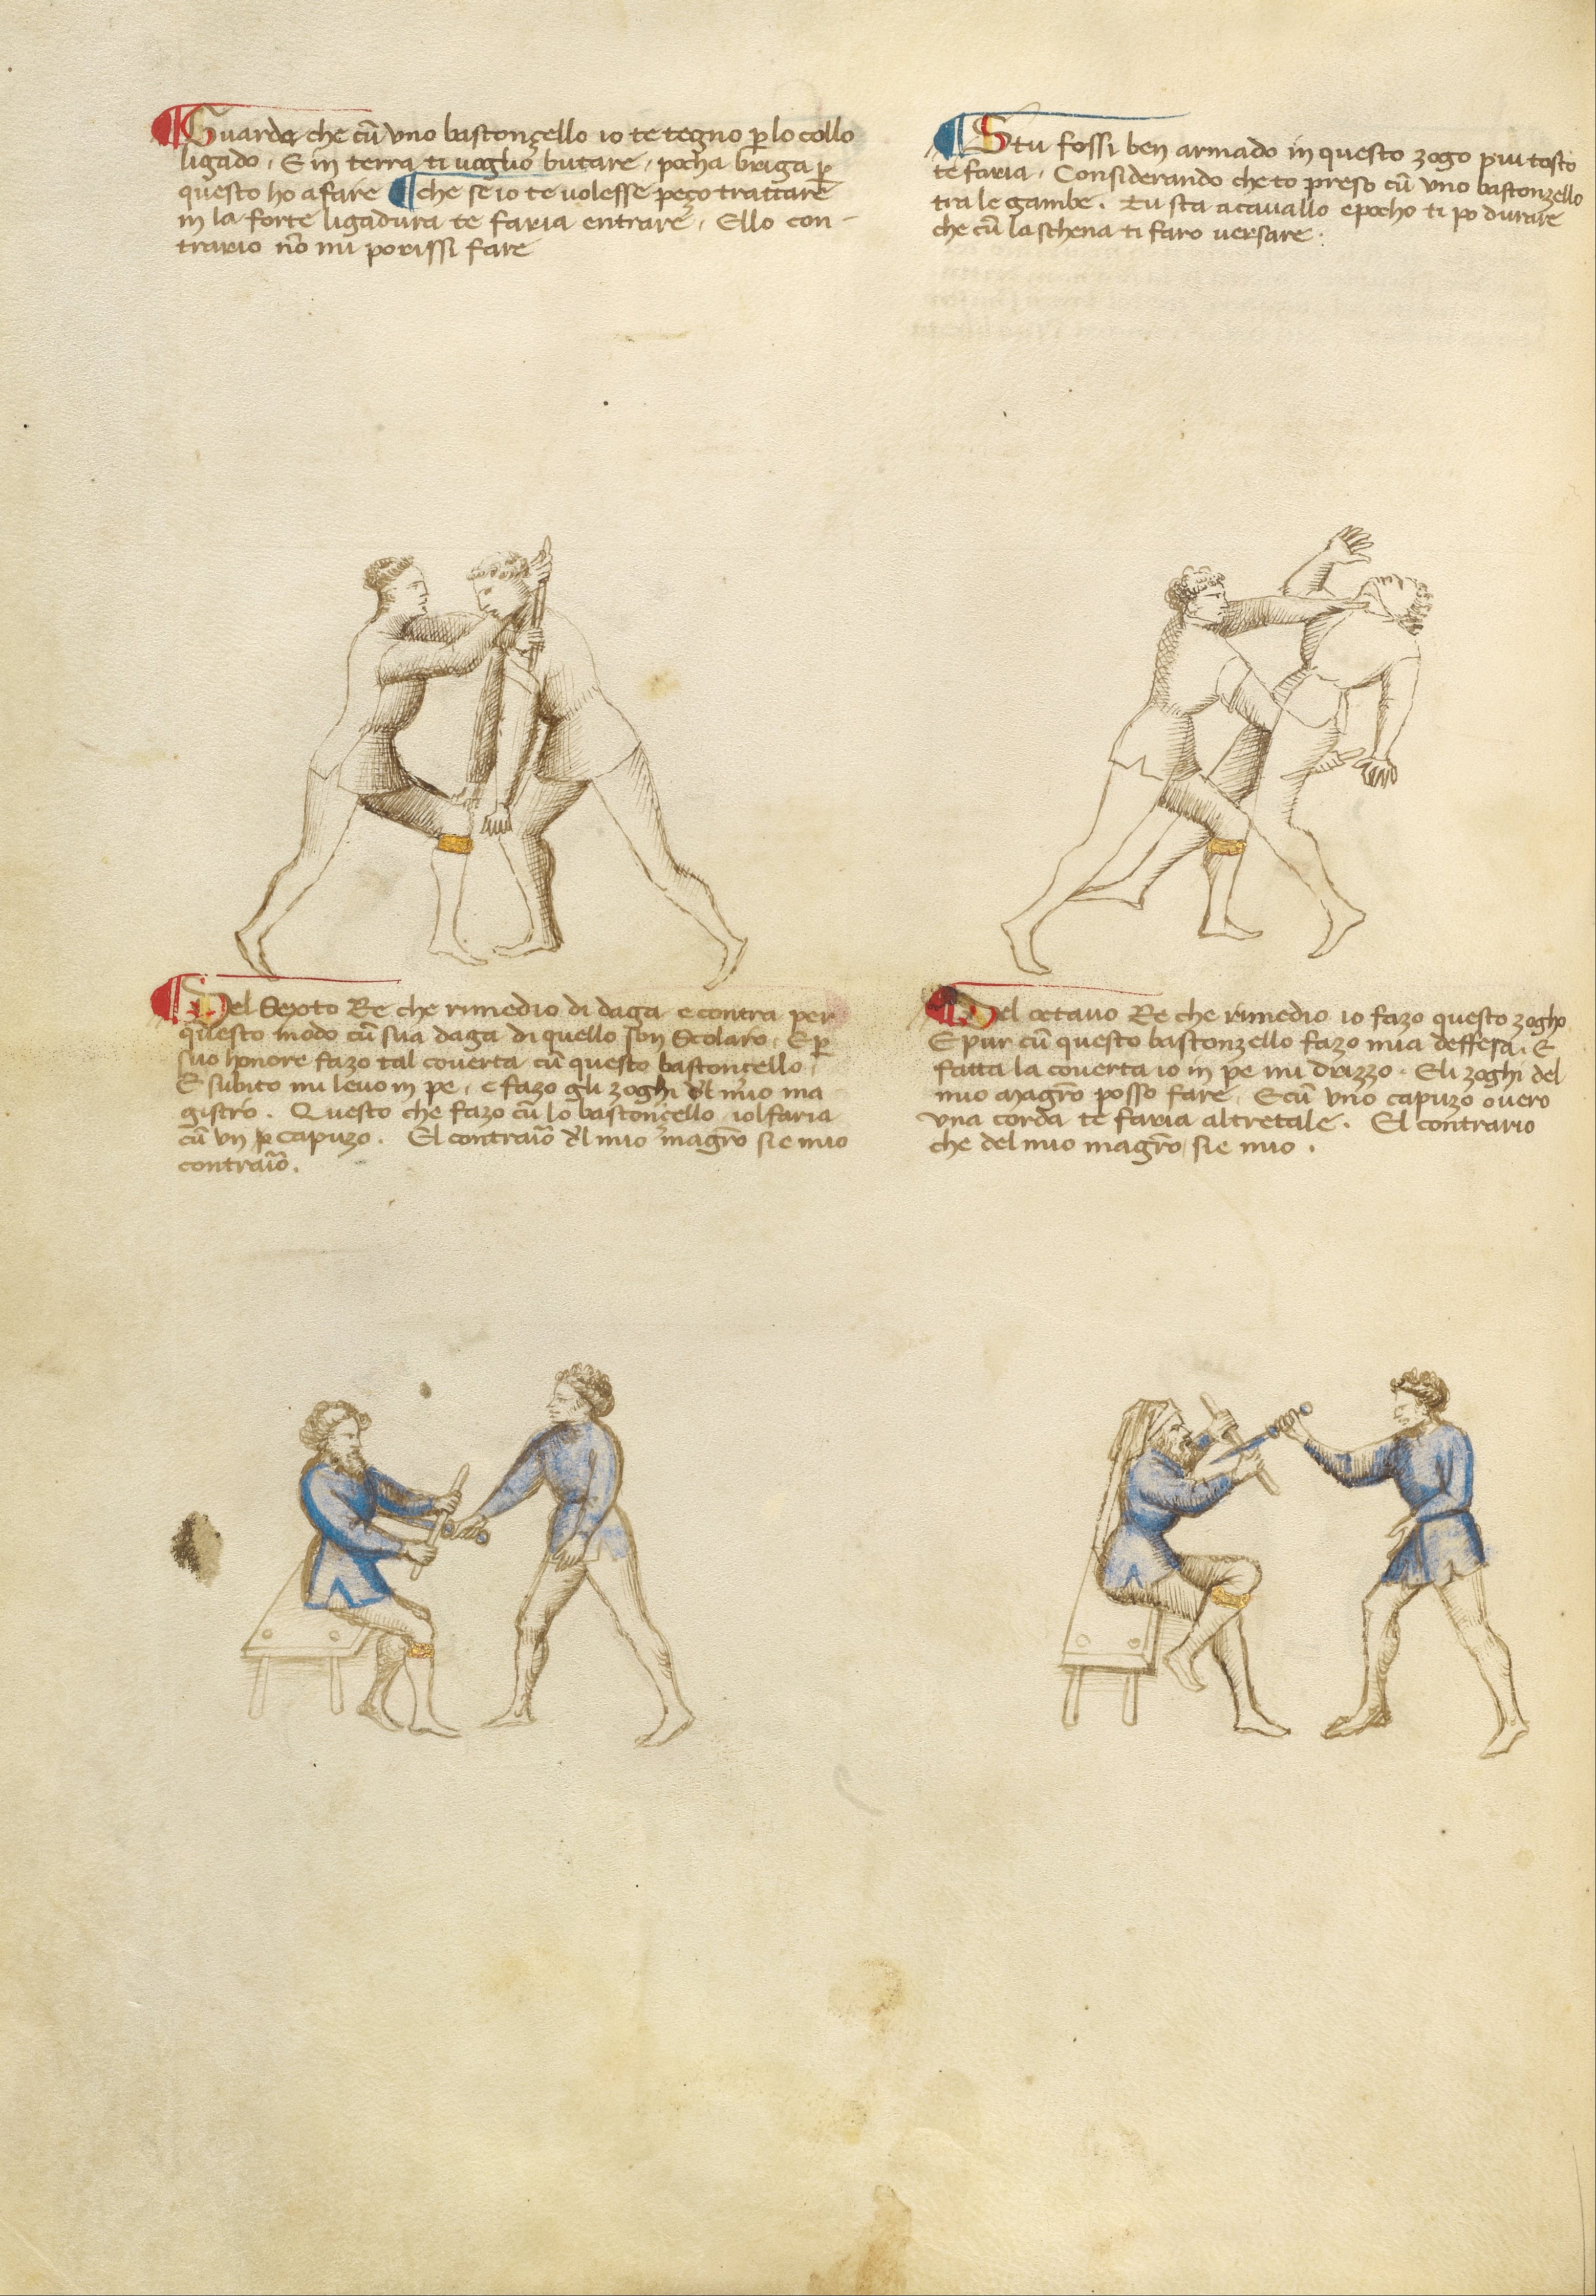 Guarda che cū uno bastonçello io te tegno p̱ lo collo
ligado. E in terra ti voglio butare, pocha briga p̱
questo ho a fare ¶ che se io te volesse peço trattare
in la forte ligadura te faria entrare, Ello con-
trario nō mi porissi fare
Stu fossi ben armado in questo zogo piu tosto
te faria. Considerando che to preso cū uno bastonzello
tra le gambe. Tu sta a cavallo e pocho ti po durare
che cū la schena ti faro versare.
Del Sexto Re che rimedio di daga e contra per
questo modo cū sua daga di quello son Scolaro. E p̱
suo honore fazo tal coverta cū questo bastoncello,
E subito mi levo in pe, e fazo gli zoghi dl mio ma
gistro. Questo che fazo cū lo bastonçello, iol faria
cū un capuzo. El contraiō dl mio magrō sie mio
contraiō.
Del octavo Re che rimedio io fazo questo zogho
E pur cū questo bastonzello fazo mia deffesa. E
fatta la coverta io in pe mi drizzo. Eli zoghi del
mio magrō posso fare, E cū uno capuzo overo
una corda te faria altretale. El contrario
che del mio magrō sie mio.